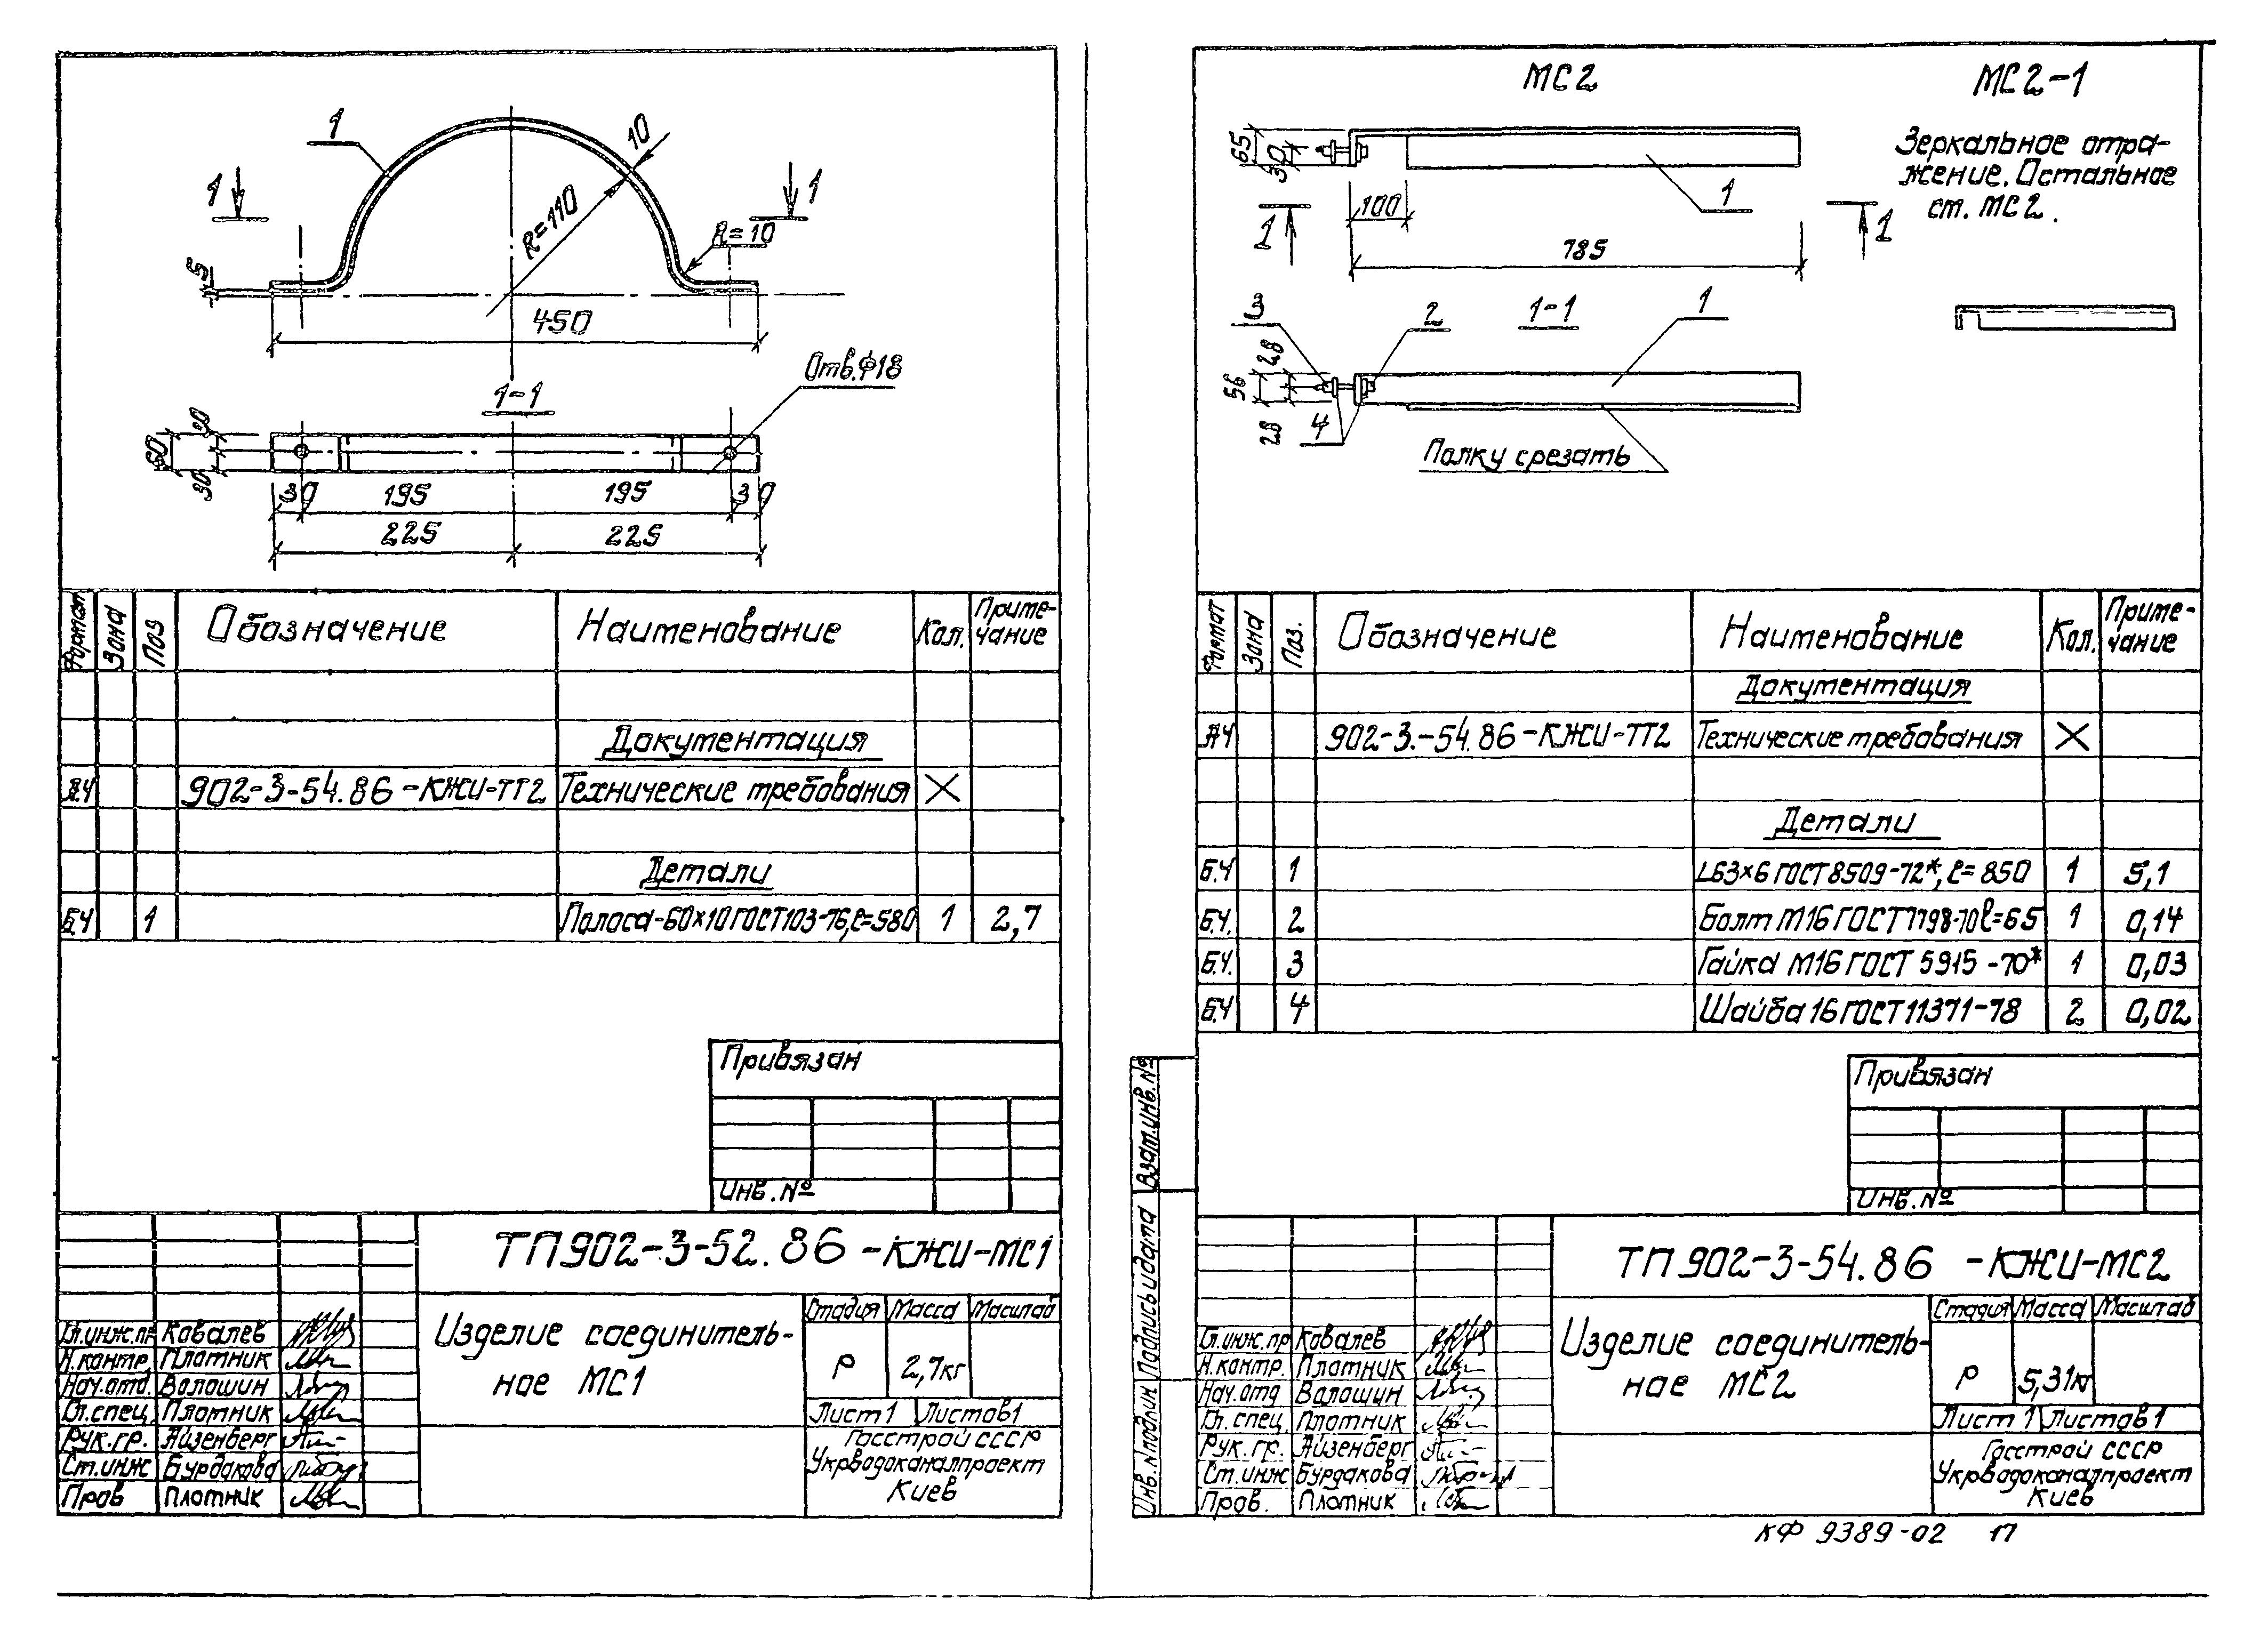 1
10
1
1
R=110
R=10
5
450
Отв.φ18
1-1
60
30
30
30
195
195
30
225
225
Формат
Зона
Поз
Обозначение
Наименование
Кол.
Приме-
чание
Документация
А4
902-3-54.86-КЖИ-ТТ2
Технические требования
Детали
Б4
1
Полоса-60×10 ГОСТ103-76, ℓ=580
1
2,7
Привязан
Инв.№
ТП902-3-52.86-КЖИ-МС1
Гл.инж.пр
Ковалев
Н.контр.
Плотник
Нач.отд.
Волошин
Гл.спец.
Плотник
Рук.гр.
Айзенберг
Ст.инж
Бурдакова
Пров
Плотник
Изделие соединитель-
ное МС1
Стадия
Масса
Масштаб
Р
2,7кг
Лист 1
Листов 1
Госстрой СССР
Укрводоканалпроект
Киев
МС2
МС2-1
Зеркальное отра-
жение. Остальное
ст. МС2.
65
30
100
1
1
1
785
3
2
1-1
1
28
56
28
4
Полку срезать
Формат
Зона
Поз.
Обозначение
Наименование
Кол.
Приме-
чание
Документация
А4
902-3.-54.86-КЖИ-ТТ2
Технические требования
Детали
Б.4
1
L63×6 ГОСТ8509-72*, ℓ=850
1
5,1
Б.4.
2
Болт М16 ГОСТ7798-70 ℓ=65
1
0,14
Б.4.
3
Гайка М16 ГОСТ 5915-70*
1
0,03
Б.4
4
Шайба 16 ГОСТ11371-78
2
0,02
Взам.инв.№
Подпись и дата
Инв.№подлин
Привязан
Инв.№
ТП902-3-54.86 -КЖИ-МС2
Гл.инж.пр
Ковалев
Н.контр.
Плотник
Нач.отд
Волошин
Гл.спец.
Плотник
Рук.гр.
Айзенберг
Ст.инж
Бурдакова
Пров.
Плотник
Изделие соединитель-
ное МС2
Стадия
Масса
Масштаб
Р
5,31кг
Лист 1
Листов 1
Госстрой СССР
Укрводоканалпроект
Киев
КФ 9389-02 17